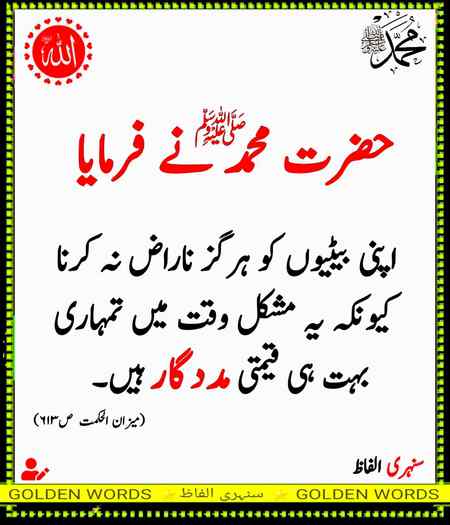 الله
محمد ﷺ
حضرت محمد ﷺ نے فرمایا
اپنی بیٹیوں کو ہرگز ناراض نہ کرنا
کیونکہ یہ مشکل وقت میں تمہاری
بہت ہی قیمتی مددگار ہیں۔
(میزان الحکمت ص۶۱۳)
سنہری الفاظ
GOLDEN WORDS سنہری الفاظ GOLDEN WORDS